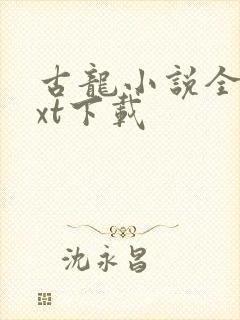 古龍小說全
xt下載
沈永昌